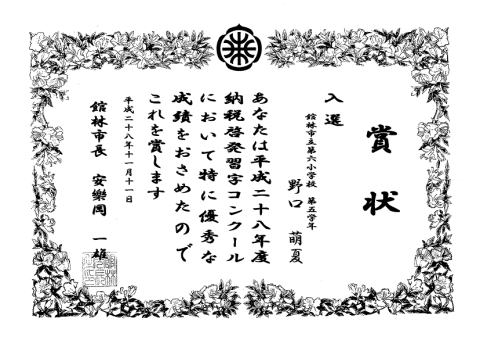 賞状
入選
館林市立第六小学校 第五学年
野口 萌夏
あなたは平成二十八年度
納税啓発習字コンクール
において特に優秀な
成績をおさめたので
これを賞します
平成二十八年十一月十一日
館林市長 安樂岡 一雄